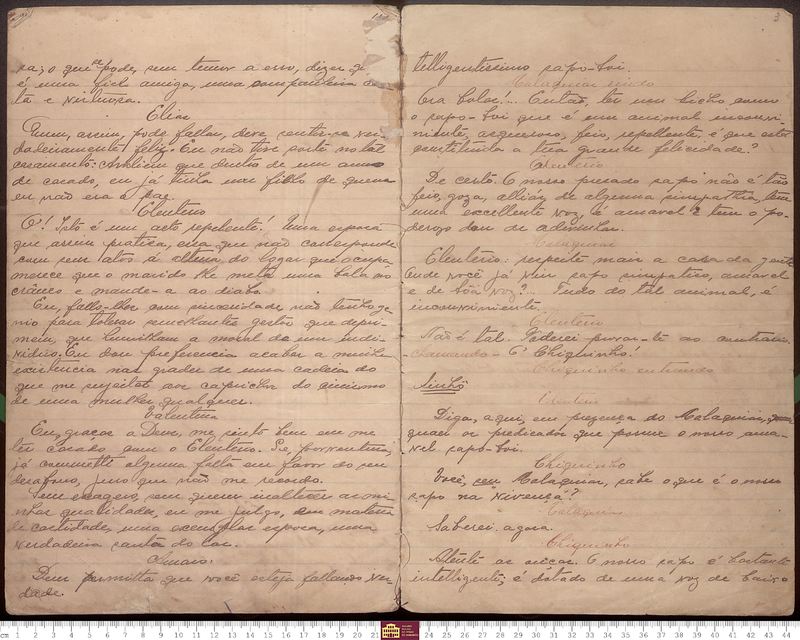 sa; o que se pode, sem temor a erro, dizer q.
é uma fiel amiga, uma companheira
ta e virtuosa.
Elias
Quem, assim, pode fallar, deve sentir-se ver
dadeiramente feliz. Eu não tive sorte no tal
casamento: Avaliem que dentro de um anno
de casado, eu já tinha um filho de quem
eu não era o pae.
Eleuterio
O! Isto é um acto repelente! Uma esposa
que assim pratica, uma que não corresponde
com seus atos á altura do logar que occupa
merece que o marido lhe meta uma bala no
crâneo e mande-a ao diabo.
Eu, fallo-lhes com sinceridade, não tenho ge
nio para tolerar semelhantes gestos que depri
mem, que humilham a moral de um indi-
viduo. Eu dou preferencia acabar a minha
existencia nas grades de uma cadeia do
que me sujeitar aos caprichos do cinismo
de uma mulher qualquer.
Valentina
Eu, graças a Deus, me sinto bem em me
ter casado com o Eleuterio. Se, porventura,
já commetti alguma falta em favor do seu
desabono, juro que não me recordo.
Sem exagero, sem querer inaltecer as mi
nhas qualidades, eu me julgo, em materia
de castidade, uma exemplar esposa, uma
verdadeira santa do lar.
Amaro
Deus permitta que você esteja fallando ver
dade.
3
telligentissimo sapo-boi.
Malaquias rindo
Ora bolas!... Então, ter um bicho como
o sapo-boi que é um animal inconve
niente, asqueroso, feio, repellente é que está
constituida a tua grande felicidade?
Eleuterio
De certo. O nosso presado sapo não é tão
feio, goza, alliás, de alguma simpathia, tem
uma excellente voz, é amavel e tem o po-
deroso dom de adivinhar.
Malaquias
Eleuterio: respeite mais a casa da gente
Onde você já viu sapo simpatico, amavel
e de bôa voz?... Tudo do tal animal, é
inconveniente.
Eleuterio
Não é tal. Poderei provar-te ao contrari
chamando- Ó Chiquinho!
Chiquinho entrando
Sinhô
Eleuterio
Diga, aqui, em presença do Malaquias,
quaes os predicados que possue o nosso ama-
vel sapo-boi.
Chiquinho
Você, seu Malaquias, sabe o que é o nosso
sapo na "vivença"?
Malaquias
Saberei agora.
Chiquinho
O nosso sapo é bastante
intelligente; é dotado de uma voz de baixo
cm 1 2 3 4 5 6 7 8 9 10 11 12 13 14 15 16 17 18 19 20 21 24 25 26 27 28 29 30 31 32 33 34 35 36 37 38 39 40 41 42 43 44